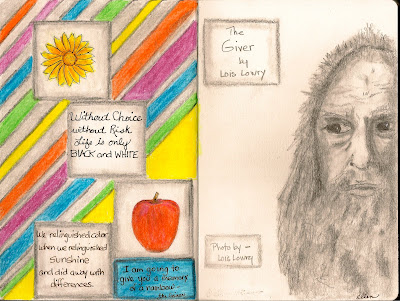 Without Choice
without Risk
Life is only
BLACK and WHITE
We relinquished color
when we relinquished
sunshine
and did away with
differences.
I am going to
give you a memory
of a rainbow.
The Giver
The
Giver
by
Lois Lowry
Photo by -
Lois Lowry